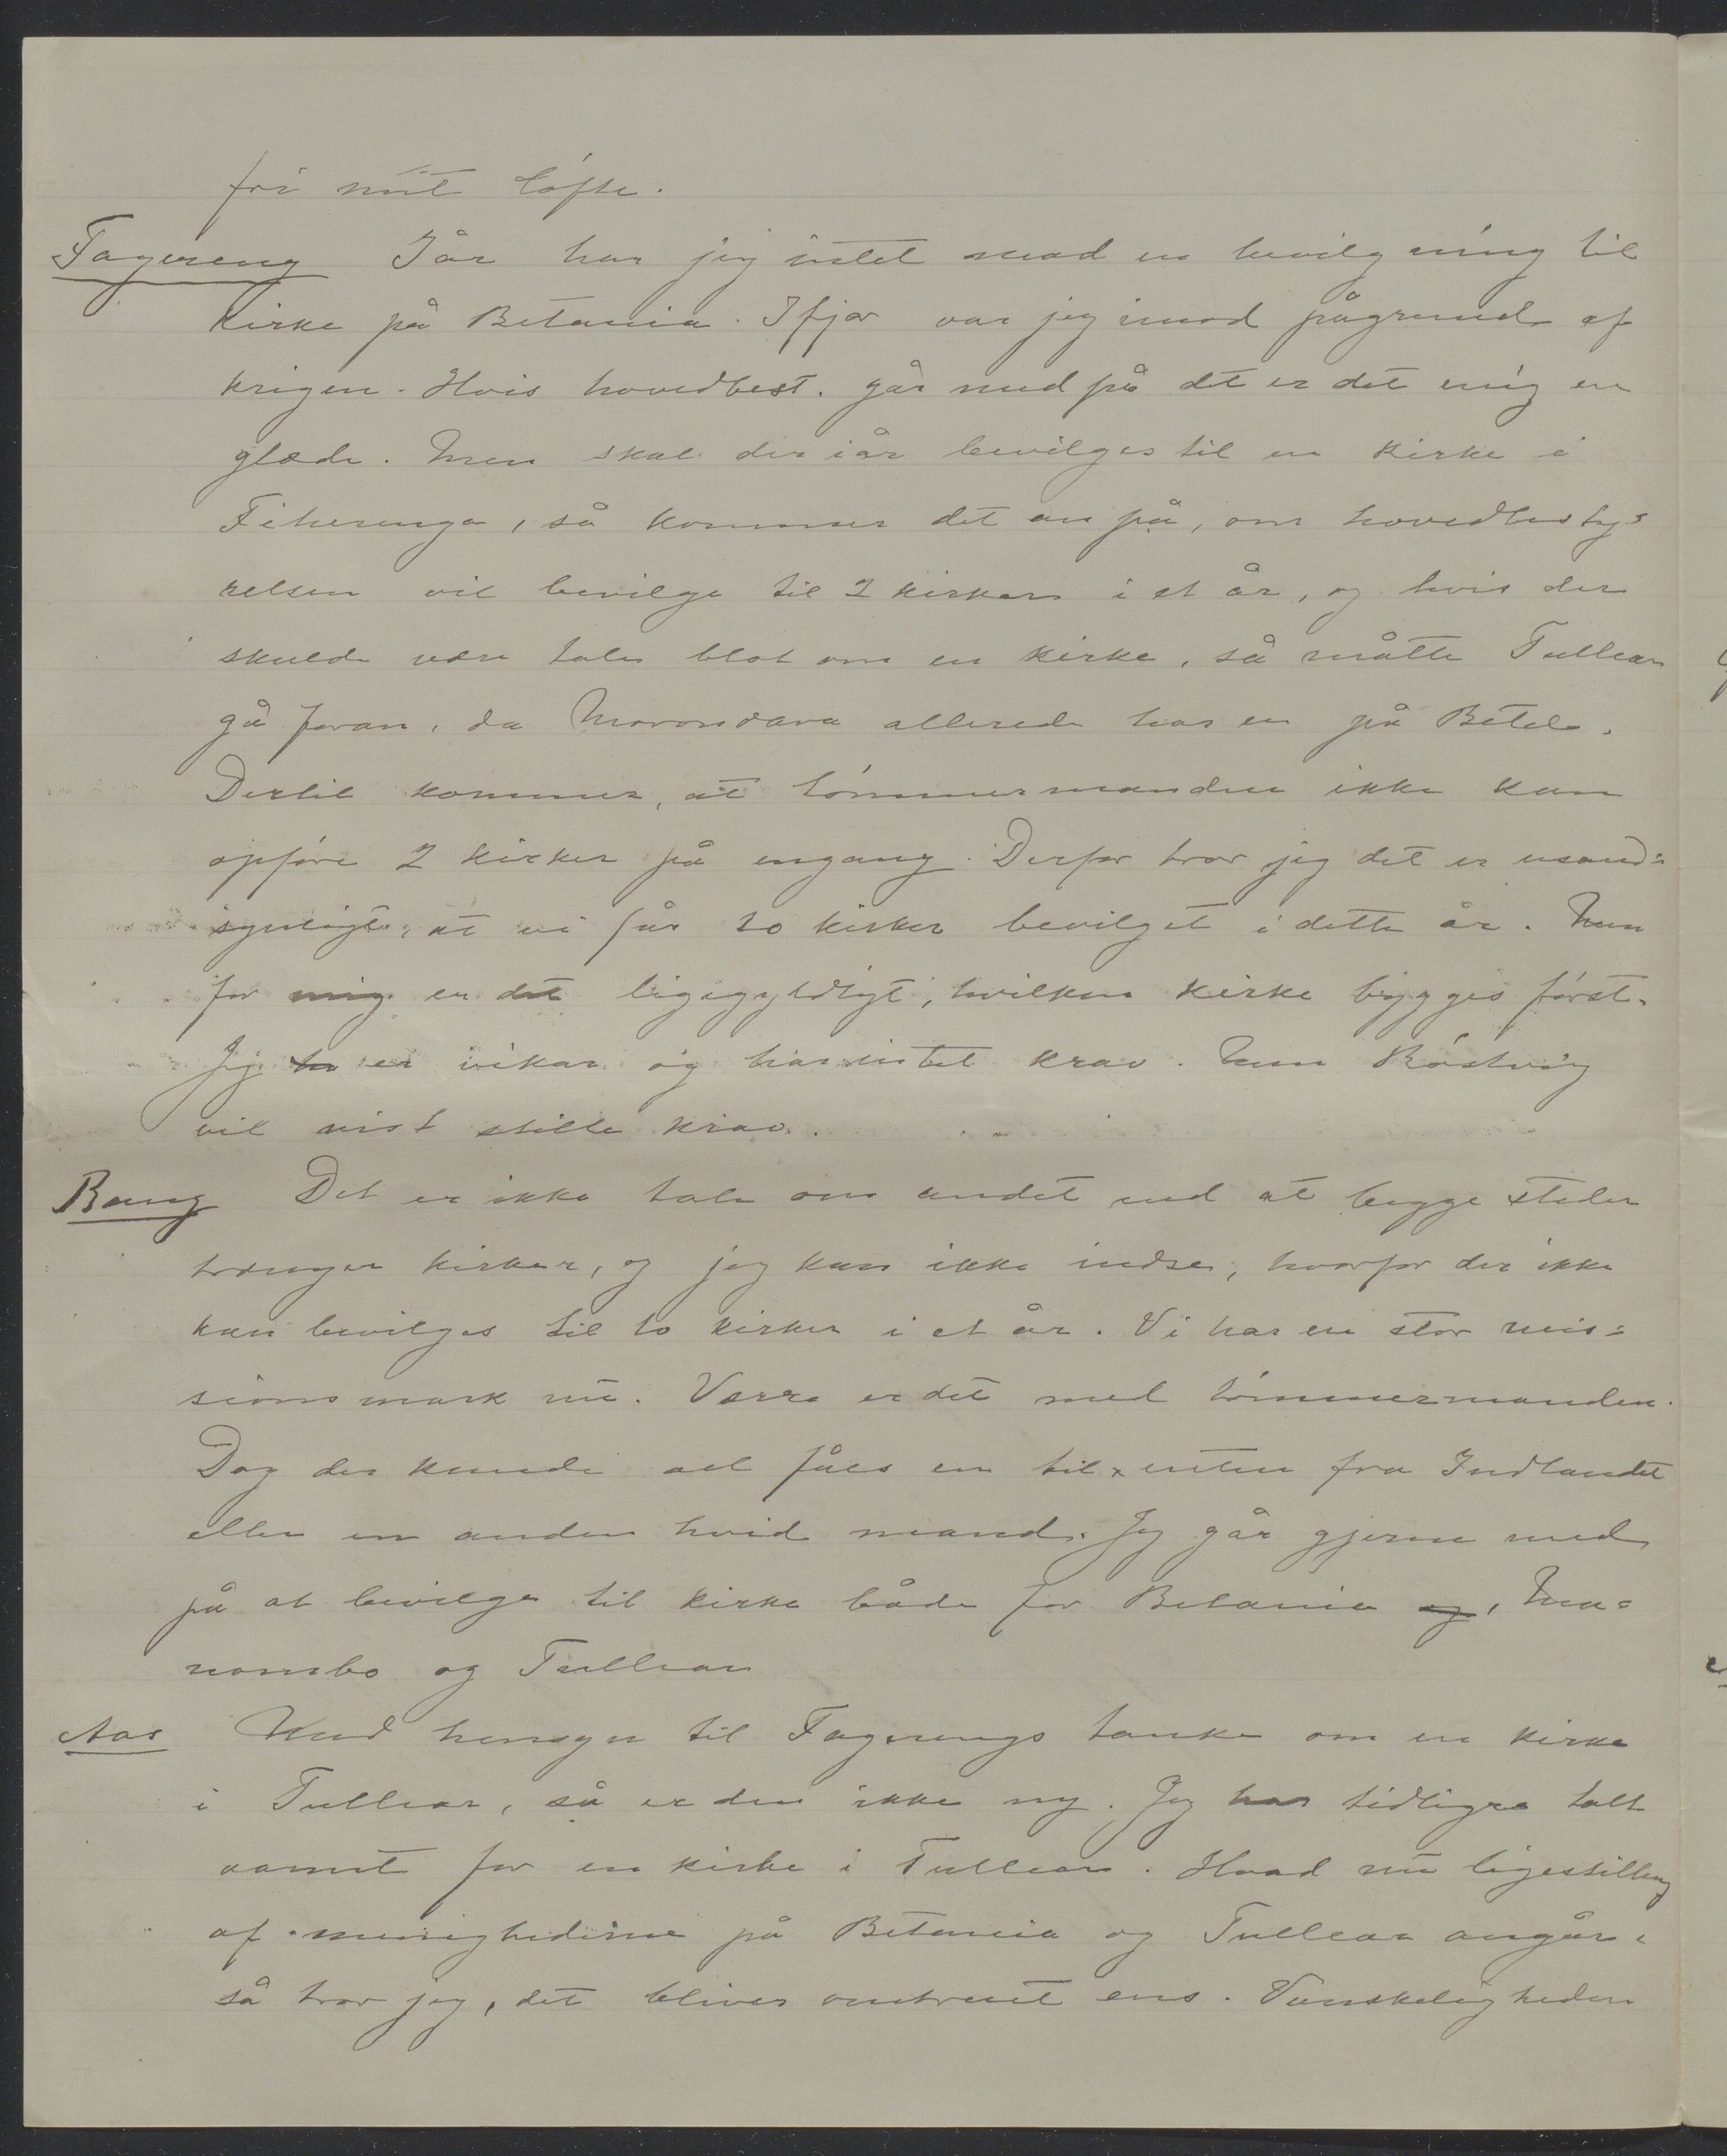 fri mit löfte.
Fagereng Iår har jeg intet mod en bevilgning til
kirke på Betania. Ifjor var jeg imod pågrund af
krigen. Hvis hovedbest. går med på det er det mig en
glæde. Men skal der iår bevilges til en kirke i
Fiherenga, så kommer det an på, om hovedbesty=
relsen vil bevilge til 2 kirker i et år, og hvis der
skulde være tale blot om en kirke, så måtte Tullear
gå foran, da Morondava allerede har en på Betel.
Dertil kommer, at tömmermanden ikke kan
opföre 2 kirker på engang. Derfor tror jeg det er usand=
synligt, at vi får to kirker bevilget i dette år. Men
for mig er det ligegyldigt, hvilken kirke bygges först.
Jeg er vikar og har intet krav. Men Röstvig
vil vist stille krav.
Bang Det er ikke tale om andet end at begge steder
trænger kirker, og jeg kan ikke indse, hvorfor der ikke
kan bevilges til to kirker i et år. Vi har en stor mis=
sionsmark nu. Værre er det med tömmermanden.
Dog der kunde vel fåes en til, enten fra Indlandet
eller en anden hvid mand. Jeg går gjerne med
på at bevilge til kirke både for Betania og, Ma=
nombo og Tullear
Aas Med hensyn til Fagerengs tanke om en kirke
i Tullear, så er den ikke ny. Jeg har tidligere talt
varmt for en kirke i Tullear. Hvad nu ligestilling
af menighederne på Betania og Tullear angår,
så tror jeg, det bliver omtrent ens. Vanskeligheden